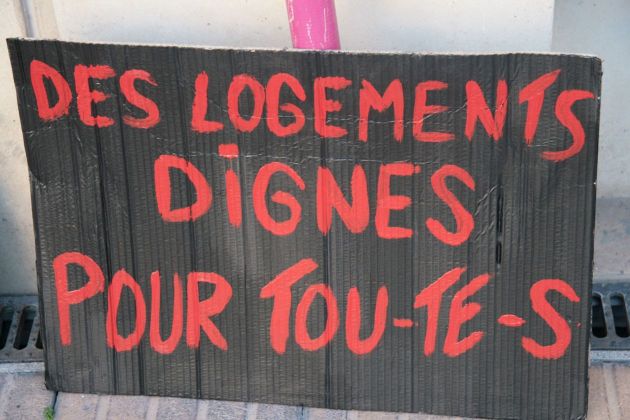 DES LOGEMENTS
DiGNES
POUR TOU-TE-S